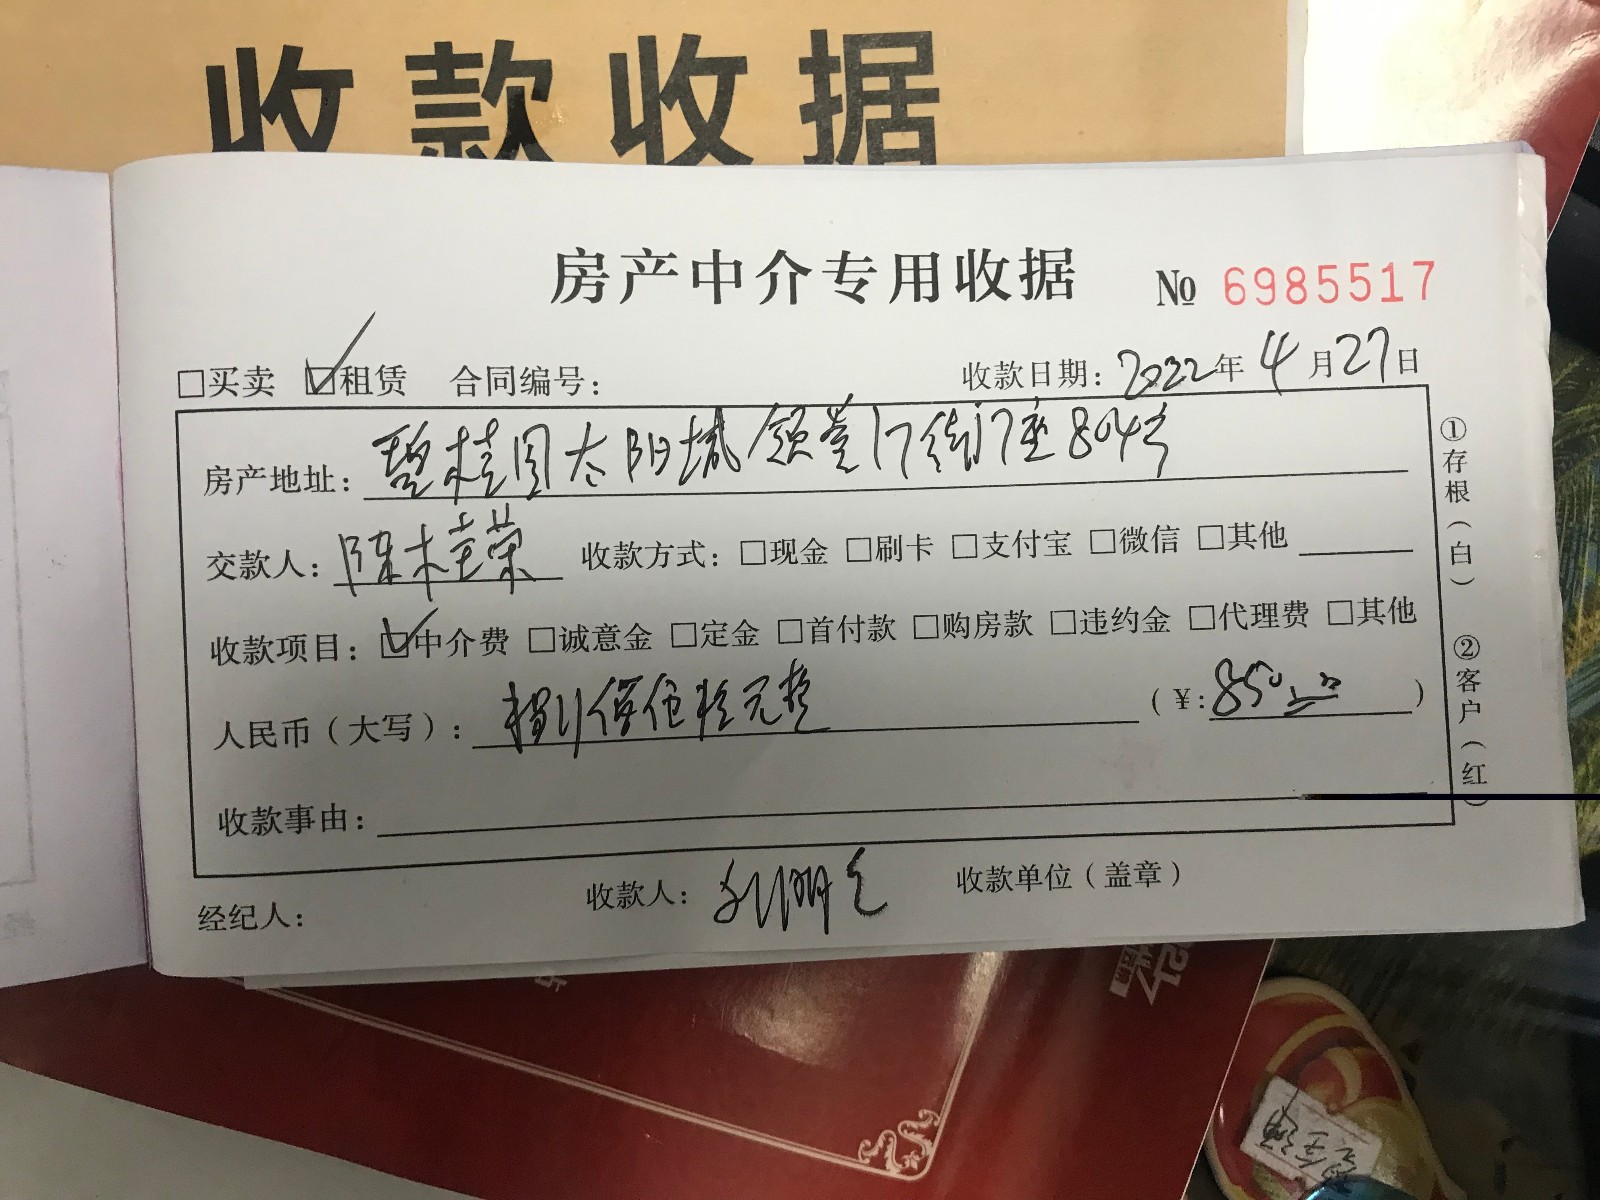 收款收据
房产中介专用收据 № 6985517
□买卖 ☑租赁 合同编号: 收款日期: 2022年4月27日
房产地址: 碧桂园太阳城领誉17街17座804号
交款人: 陈桂荣 收款方式: □现金 □刷卡 □支付宝 □微信 □其他
收款项目: ☑中介费 □诚意金 □定金 □首付款 □购房款 □违约金 □代理费 □其他
人民币(大写): 捌佰伍拾元整 (¥: 850.00)
收款事由:
经纪人: 收款人: 收款单位(盖章)
①存根(白) ②客户(红)